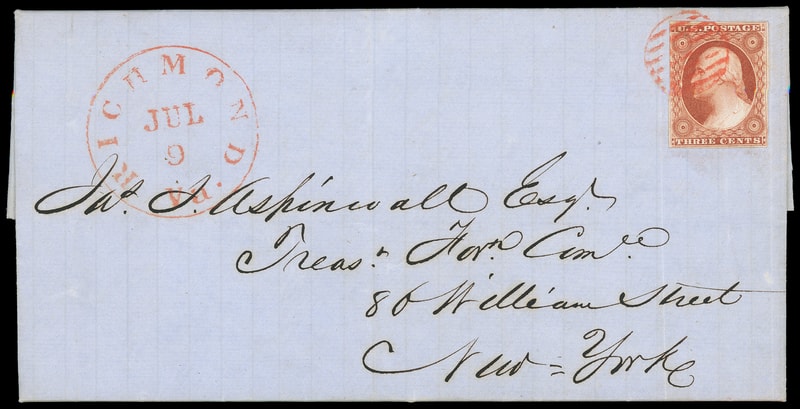 RICHMOND Va.
JUL
9
U.S. POSTAGE
THREE CENTS
Jas. J. Aspinwall Esqr.
Treasr. Forn. Comee.
86 William Street
New=York